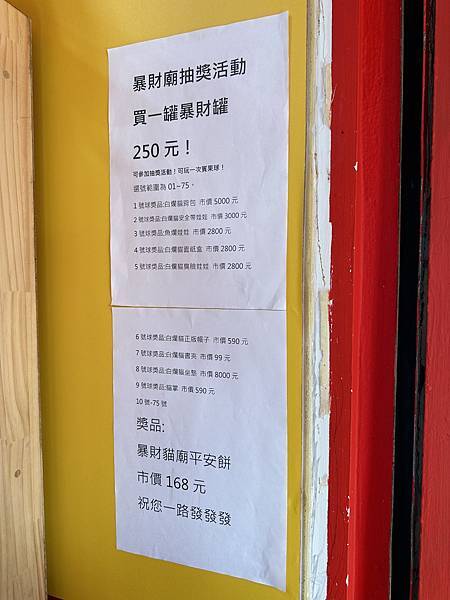 暴財廟抽獎活動
買一罐暴財罐
250 元！
可參加抽獎活動！可玩一次賓果球！
選號範圍為 01~75。
1 號球獎品:白爛貓背包 市價 5000 元
2 號球獎品:白爛貓安全帶娃娃 市價 3000 元
3 號球獎品:魚爛娃娃 市價 2800 元
4 號球獎品:白爛貓面紙盒 市價 2800 元
5 號球獎品:白爛貓臭臉娃娃 市價 2800 元
6 號球獎品:白爛貓正版帽子 市價 590 元
7 號球獎品:白爛貓書夾 市價 99 元
8 號球獎品:白爛貓坐墊 市價 8000 元
9 號球獎品:貓掌 市價 590 元
10 號-75 號
獎品:
暴財貓廟平安餅
市價 168 元
祝您一路發發發